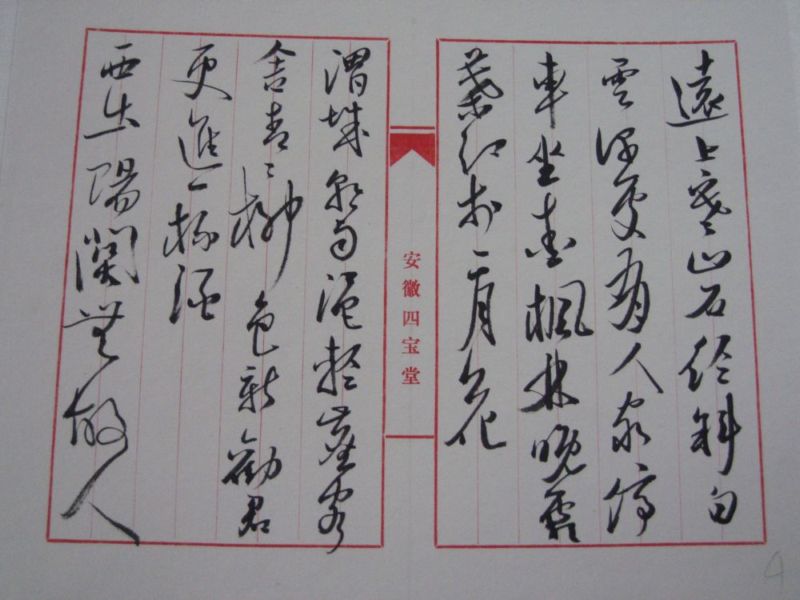 遠上寒山石径斜白
雲深處有人家停
車坐愛楓林晚霜
葉紅於二月花
安徽四宝堂
渭城朝雨浥輕塵客
舍青青柳色新勸君
更進一杯酒
西出陽關無故人